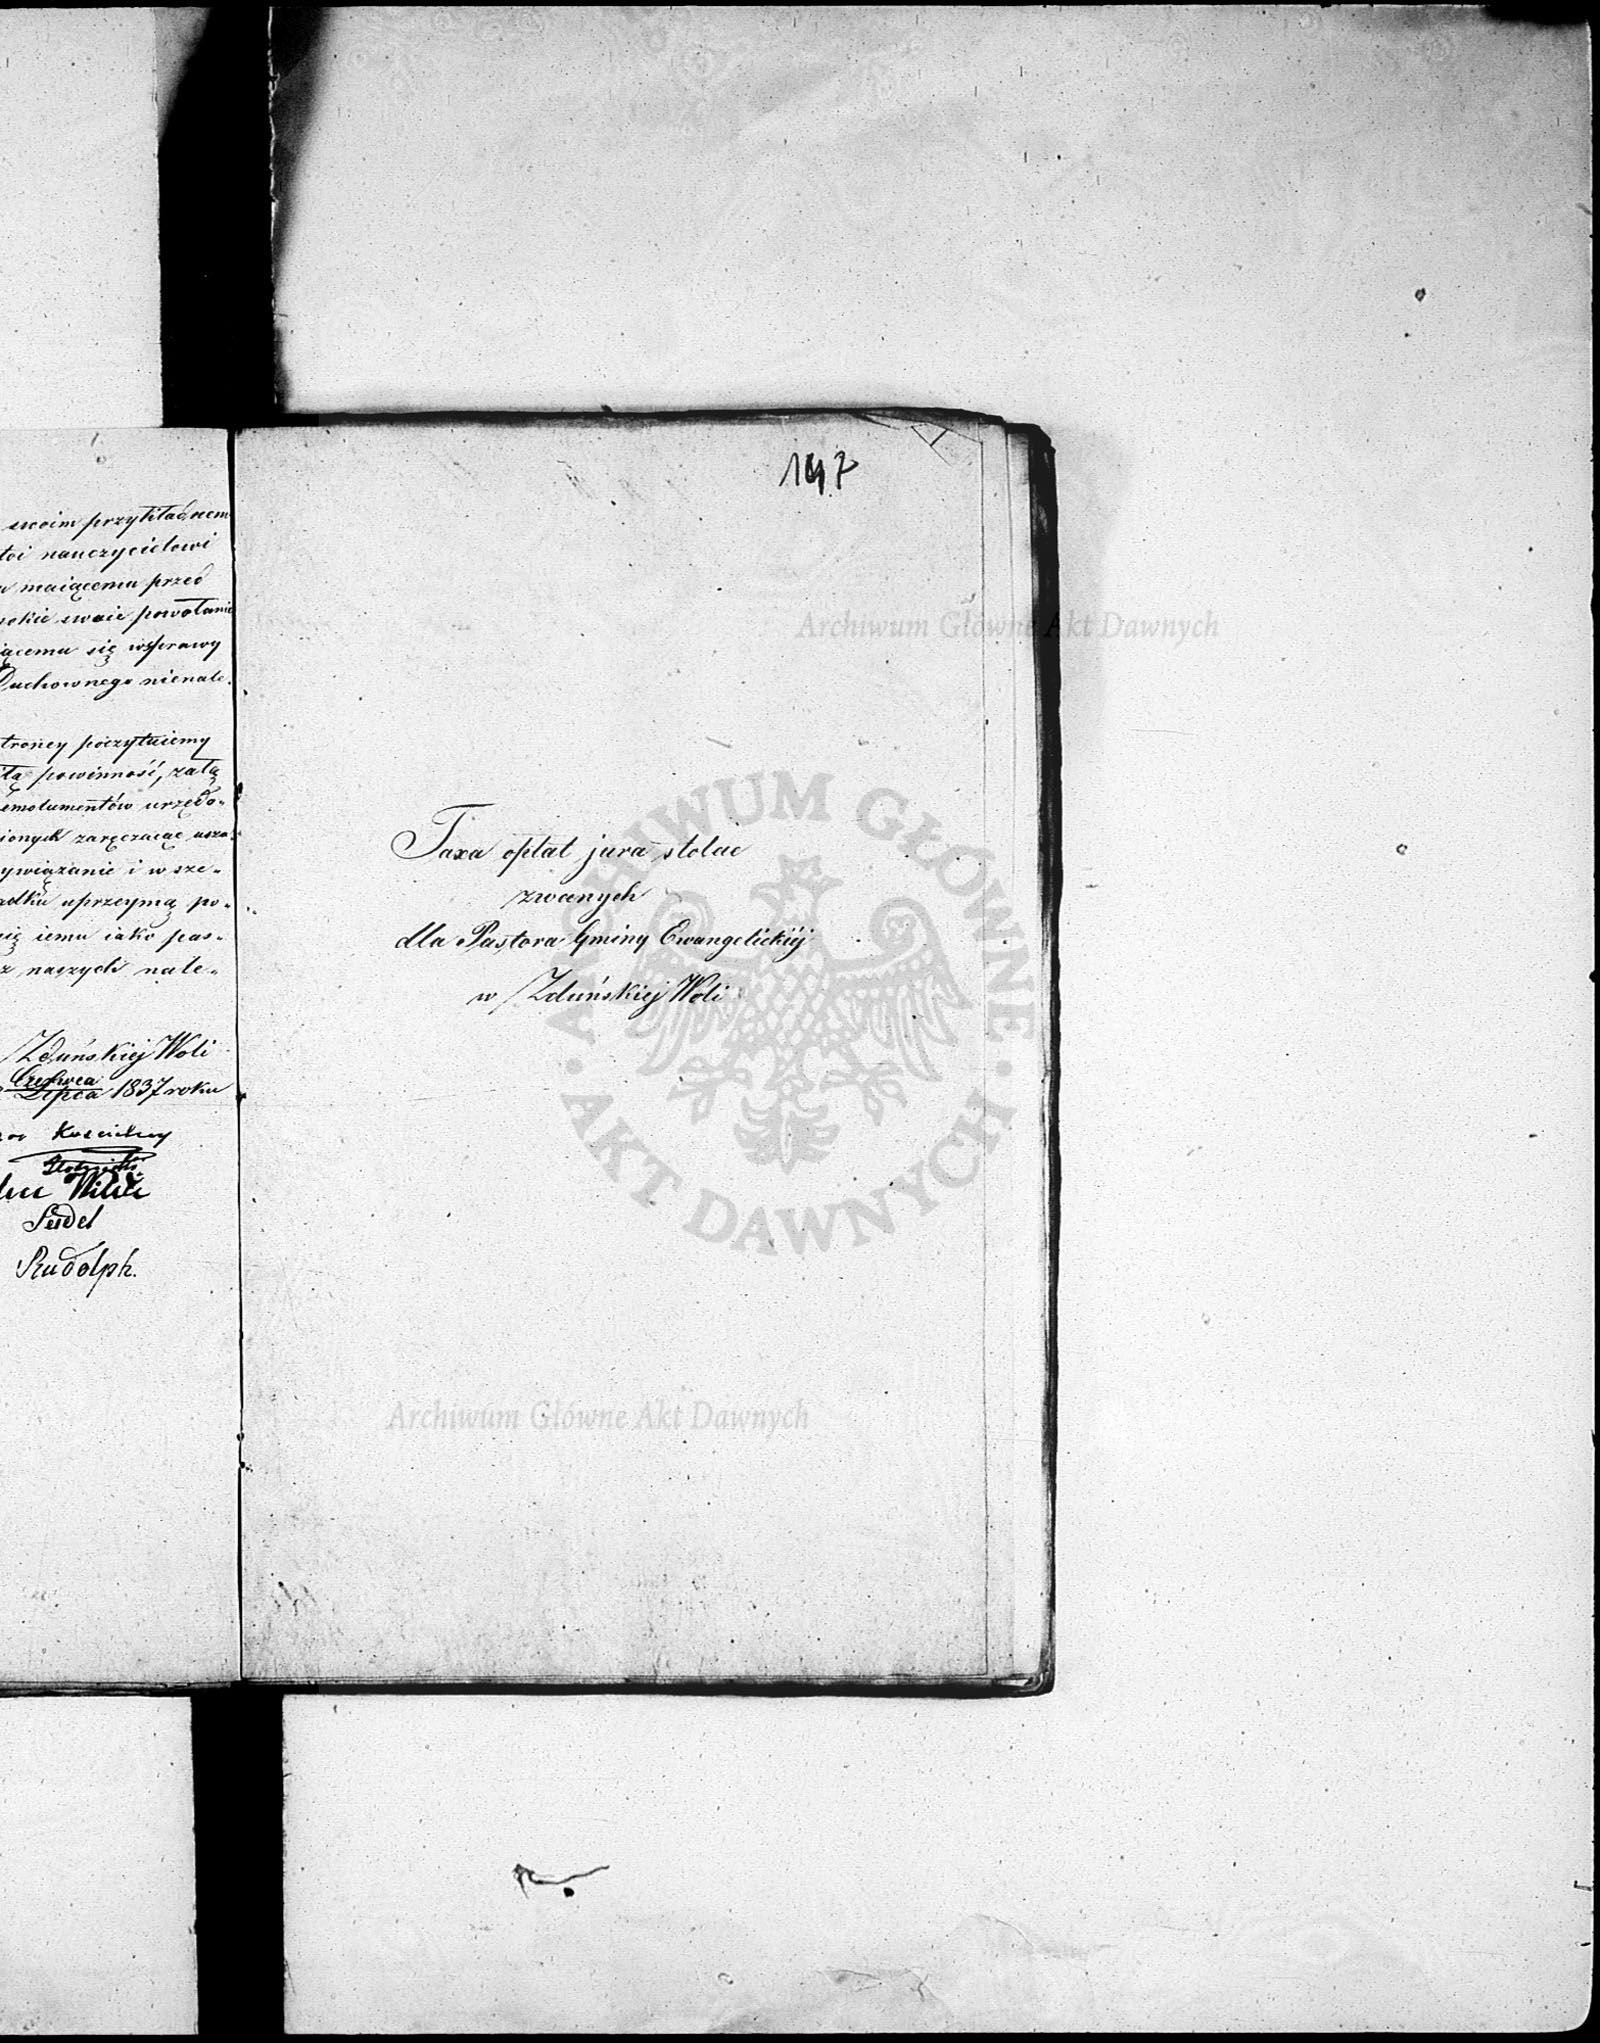 swoim przykładnem
toi nauczycielowi
maiącemu przed
sokie swoie powołanie
iącemu się wsprawy
Duchownego nienale.
trończy poczytuiemy
itą powinność, zatą
emolumentów urzędo-
ionych zaręczaiąc usza-
ywiązanie i w sze-
adku uprzeymą po-
się iemu iako pas-
z naszych nale-
Zduńskiej Woli
Czerwca
Lipca 1837 roku
Kościelny
Wilde
Seidel
Rudolph.
147
Taxa opłat jura stolae
zwanych
dla Pastora Gminy Ewangelickiéj
w Zduńskiej Woli
Archiwum Główne Akt Dawnych
ARCHIWUM GŁÓWNE · AKT DAWNYCH ·
Archiwum Główne Akt Dawnych